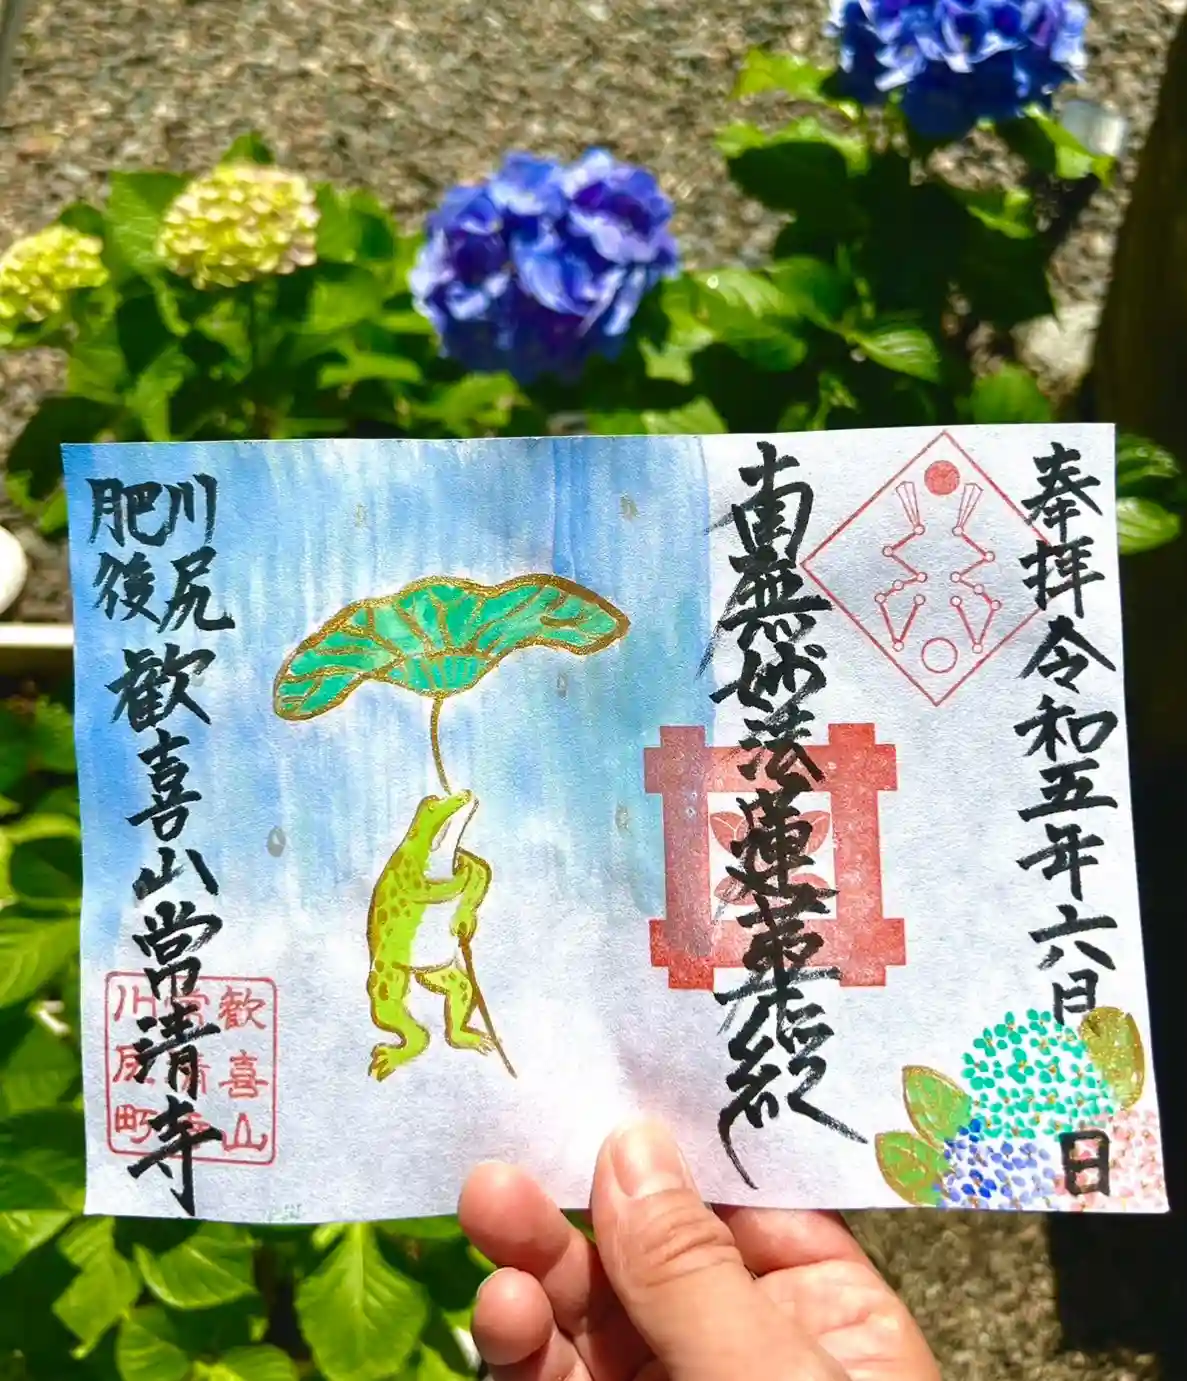 奉拝令和五年六月
日
南無妙法蓮華経
肥後
川尻
歓喜山常清寺
歓喜山
常清寺
川尻町